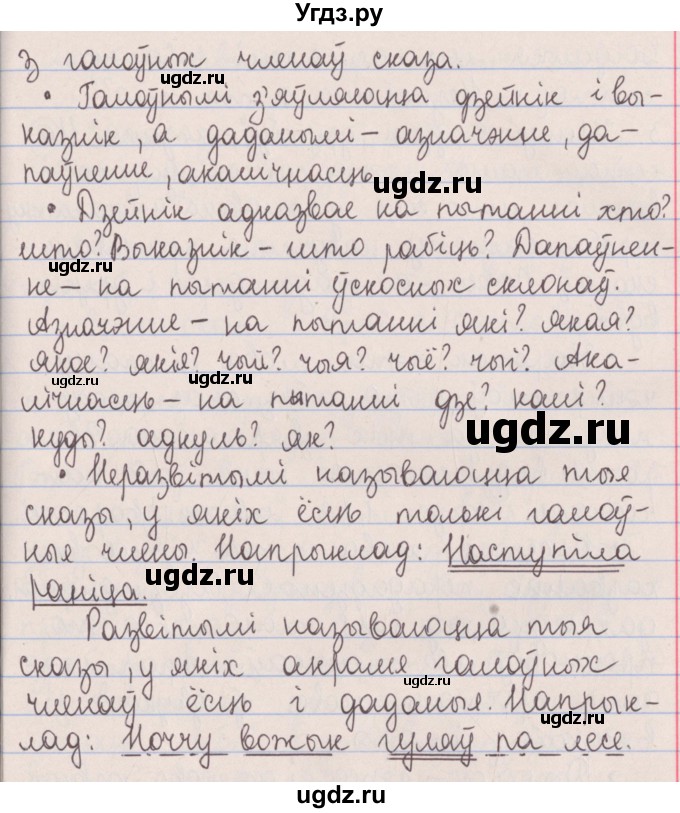 Угдз.ру
з галоўных членаў сказа.
ugdz.ru
• Галоўнымі з'яўляюцца дзейнік і вы-
казнік, а даданымі – азначэнне, да-
паўненне, акалічнасць.
ugdz.ru
• Дзейнік адказвае на пытанні хто?
што? Выказнік – што рабіць? Дапаўнен-
ugdz.ru
не – на пытанні ўскосных склонаў.
Азначэнне – на пытанні які? якая?
якое? якія? чый? чыя? чыё? чыі? Ака-
ugdz.ru ugdz.ru
лічнасць – на пытанні дзе? калі?
ugdz.ru
куды? адкуль? як?
• Неразвітымі называюцца тыя
сказы, у якіх ёсць толькі галоў-
ныя члены. Напрыклад: Наступіла
ugdz.ru
раніца.
Развітымі называюцца тыя
сказы, у якіх акрамя галоўных
ugdz.ru
членаў ёсць і даданыя. Напрык-
ugdz.ru
лад: Ноччу вожык гуляў па лесе.
ugdz.ru
ugdz.ru